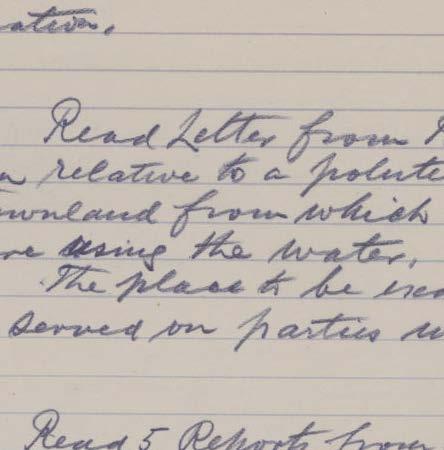 ation.
Read Letter from
relative to a polute
ownland from which
re using the water.
The place to be exa
served on parties
Read 5 Reports from